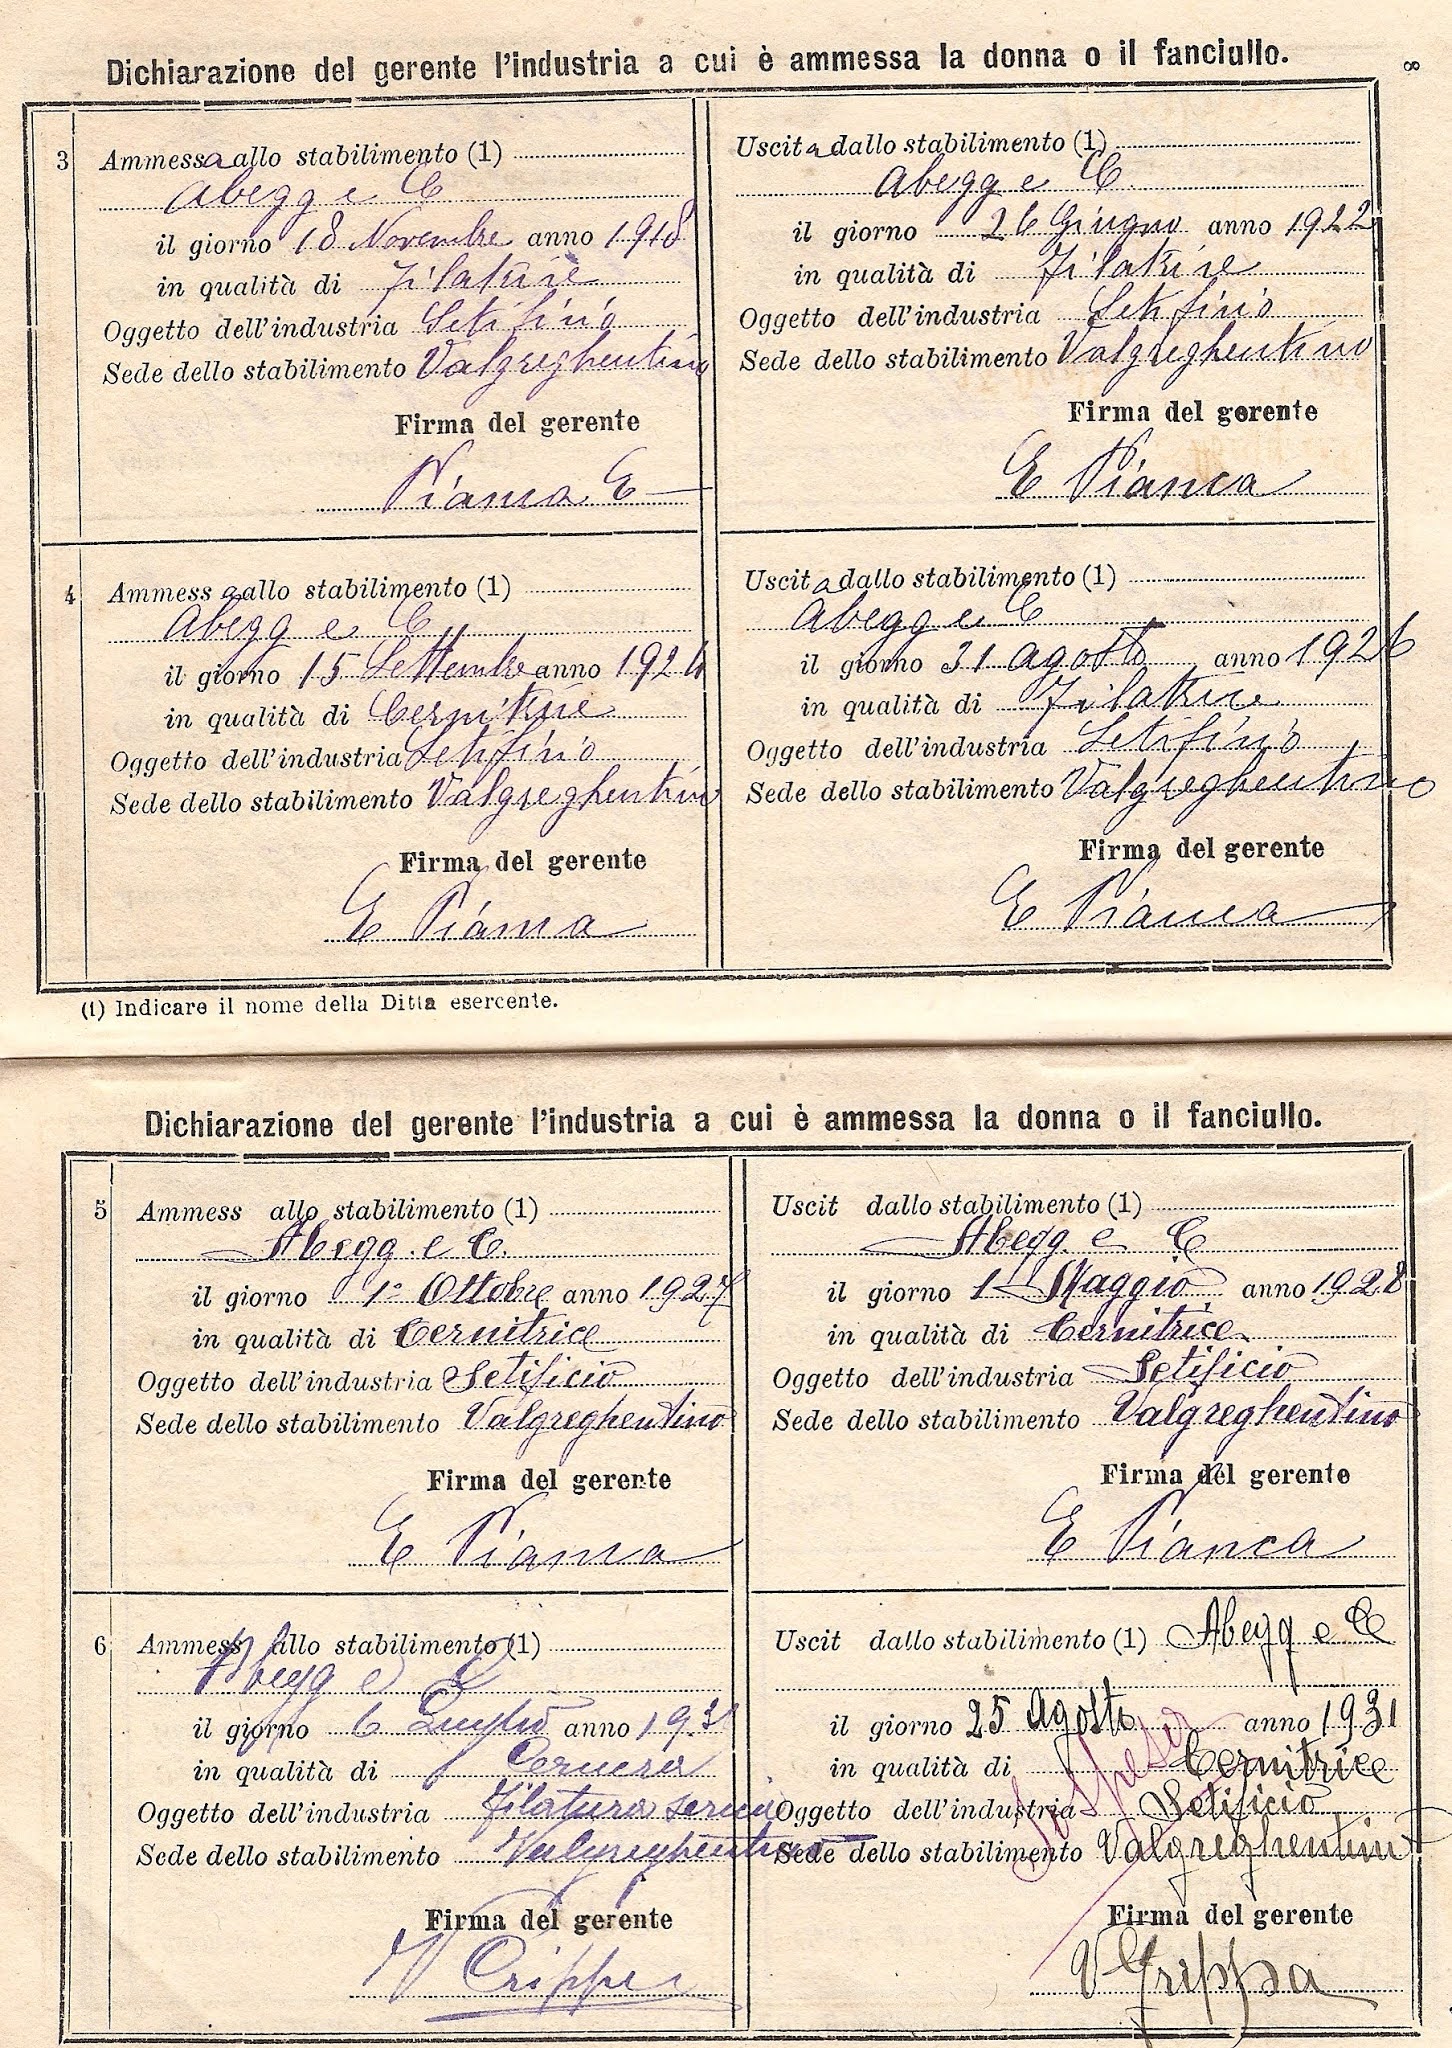 Dichiarazione del gerente l'industria a cui è ammessa la donna o il fanciullo.
8
3
Ammessa allo stabilimento (1)
Abegg e C
il giorno 18 Novembre anno 1918
in qualità di Filatrice
Oggetto dell'industria Setificio
Sede dello stabilimento Valgreghentino
Firma del gerente
Pianca E
Uscita dallo stabilimento (1)
Abegg e C.
il giorno 26 Giugno anno 1922
in qualità di Filatrice
Oggetto dell'industria Setificio
Sede dello stabilimento Valgreghentino
Firma del gerente
E Pianca
4
Ammessa allo stabilimento (1)
Abegg e C
il giorno 15 Settembre anno 1924
in qualità di Cernitrice
Oggetto dell'industria Setificio
Sede dello stabilimento Valgreghentino
Firma del gerente
E Pianca
Uscita dallo stabilimento (1)
Abegg e C
il giorno 31 Agosto anno 1926
in qualità di Filatrice
Oggetto dell'industria Setificio
Sede dello stabilimento Valgreghentino
Firma del gerente
E Pianca
(1) Indicare il nome della Ditta esercente.
Dichiarazione del gerente l'industria a cui è ammessa la donna o il fanciullo.
5
Ammess allo stabilimento (1)
Abegg e C.
il giorno 1° Ottobre anno 1927
in qualità di Cernitrice
Oggetto dell'industria Setificio
Sede dello stabilimento Valgreghentino
Firma del gerente
E Pianca
Uscit dallo stabilimento (1)
Abegg e C
il giorno 1 Maggio anno 1928
in qualità di Cernitrice
Oggetto dell'industria Setificio
Sede dello stabilimento Valgreghentino
Firma del gerente
E Pianca
6
Ammess allo stabilimento (1)
Abegg e C
il giorno 6 Luglio anno 1931
in qualità di
Oggetto dell'industria Filatura serica
Sede dello stabilimento Valgreghentino
Firma del gerente
V Crippa
Uscit dallo stabilimento (1) Abegg e C
il giorno 25 Agosto anno 1931
in qualità di Cernitrice
Oggetto dell'industria Setificio
Sede dello stabilimento Valgreghentino
Sospesa
Firma del gerente
V Crippa